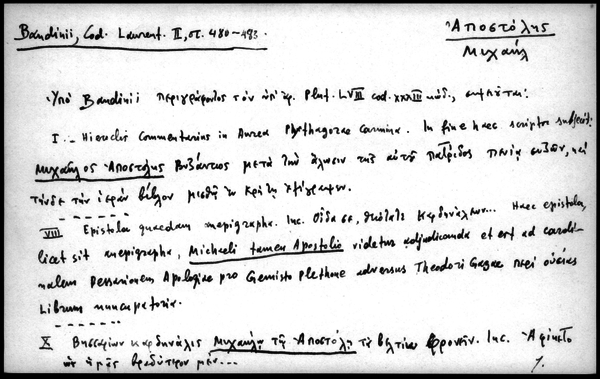 Bandinii, Cod. Laurent. II, στ. 480-493.
Ἀποστόλης
Μιχαήλ
Ὑπὸ Bandinii περιγράφοντος τὸν ὑπ' ἀρ. Plut. LVIII cod. XXXIII κώδ.,
I.- Hieroclis Commentarius in Aurea Pythagorae Carmina. In fine haec scriptor subjecit:
Μιχαῆλος Ἀποστόλης Βυζάντιος μετὰ τὴν ἅλωσιν τῆς αὐτοῦ πατρίδος πενίᾳ συζῶν, καὶ
τήνδε τὴν ἱερὰν βίβλον μισθῷ ἐν Κρήτῃ ἐξέγραψεν.
VIII Epistola quaedam anepigrapha. Inc. Οἶδά σε, θειότατε Καρδηνάλιε... Haec epistola,
licet sit anepigrapha, Michaeli tamen Apostolio videtur adjudicanda et est ad cardi-
nalem Bessarionem Apologiae pro Gemisto Plethone adversus Theodori Gazae περὶ οὐσίας
Librum nuncupatoria.
X Βησσαρίων καρδηνάλις Μιχαήλῳ τῷ Ἀποστόλῃ τὰ βελτίω φρονεῖν. Inc. Ἀφίκετο
ὡς ἡμᾶς βραδύτερον μὲν...